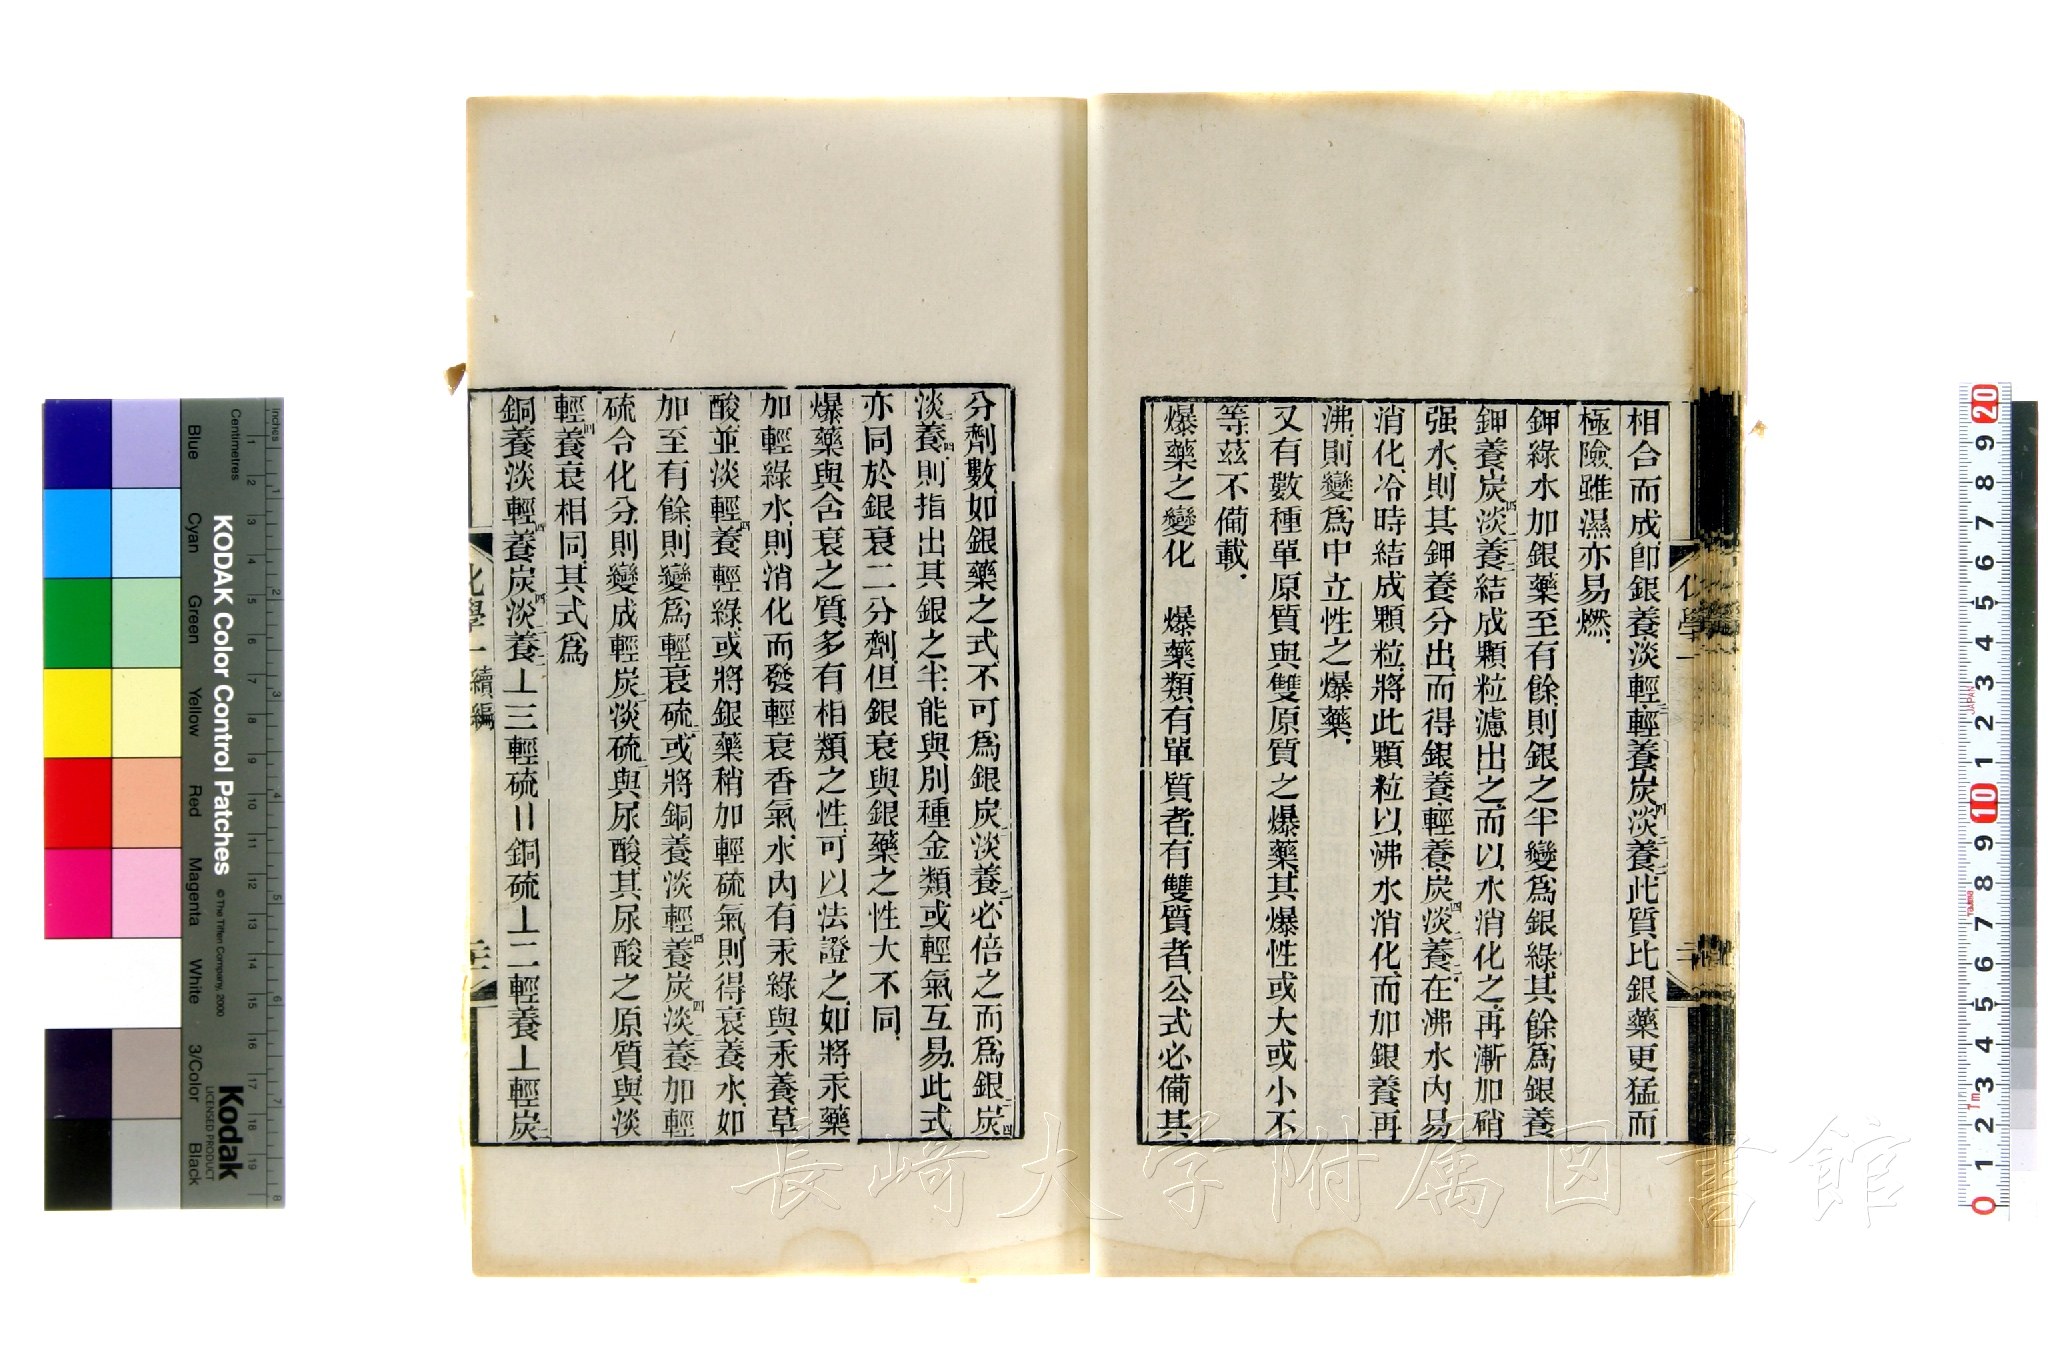 相合而成卽銀養淡輕三輕養炭四淡二養二此質比銀藥更猛而
極險雖濕亦易燃
鉀綠水加銀藥至有餘則銀之半變爲銀綠其餘爲銀養
鉀養炭四淡二養二結成顆粒濾出之而以水消化之再漸加硝
强水則其鉀養分出而得銀養輕養炭四淡二養二在沸水內易
消化冷時結成顆粒將此顆粒以沸水消化而加銀養再
沸則變爲中立性之爆藥
又有數種單原質與雙原質之爆藥其爆性或大或小不
等茲不備載
爆藥之變化 爆藥類有單質者有雙質者公式必備其
分劑數如銀藥之式不可爲銀炭二淡養二必倍之而爲銀二炭四
淡二養四則指出其銀之半能與別種金類或輕氣互易此式
亦同於銀衰二分劑但銀衰與銀藥之性大不同
爆藥與含衰之質多有相類之性可以法證之如將汞藥
加輕綠水則消化而發輕衰香氣水內有汞綠與汞養草
酸並淡輕四養輕綠或將銀藥稍加輕硫氣則得衰養水如
加至有餘則變爲輕衰硫二或將銅養淡輕四養炭四淡二養二加輕
硫令化分則變成輕炭二淡硫二與尿酸其尿酸之原質與淡
輕四養衰相同其式爲
銅養淡輕四養炭四淡二養二⊥三輕硫〢銅硫⊥二輕養⊥輕炭二
化學一
化學一續編
長崎大学附属図書館
KODAK Color Control Patches
© The Tiffen Company, 2000
Kodak
LICENSED PRODUCT
Inches
Centimetres
Blue
Cyan
Green
Yellow
Red
Magenta
White
3/Color
Black